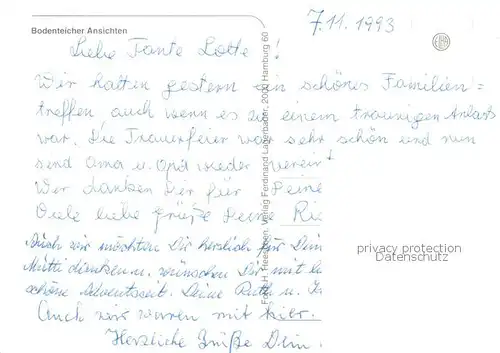 7.11.1993
Bodenteicher Ansichten
Liebe Tante Lotte!
Wir hatten gestern ein schönes Familien=
treffen, auch wenn es zu einem traurigen Anlaß
war. Die Trauerfeier war sehr schön und nun
sind Oma u. Opa wieder vereint
Wir danken Dir für Deine
Viele liebe Grüße Deine
Auch wir möchten Dir herzlich für Dein
Mutti danken u. wünschen Dir mit
schöne Adventszeit. Deine Ruth u.
Auch wir waren mit hier.
Herzliche Grüße Dein
Verlag Ferdinand Lagerbauer, 2000 Hamburg 60
privacy protection
Datenschutz